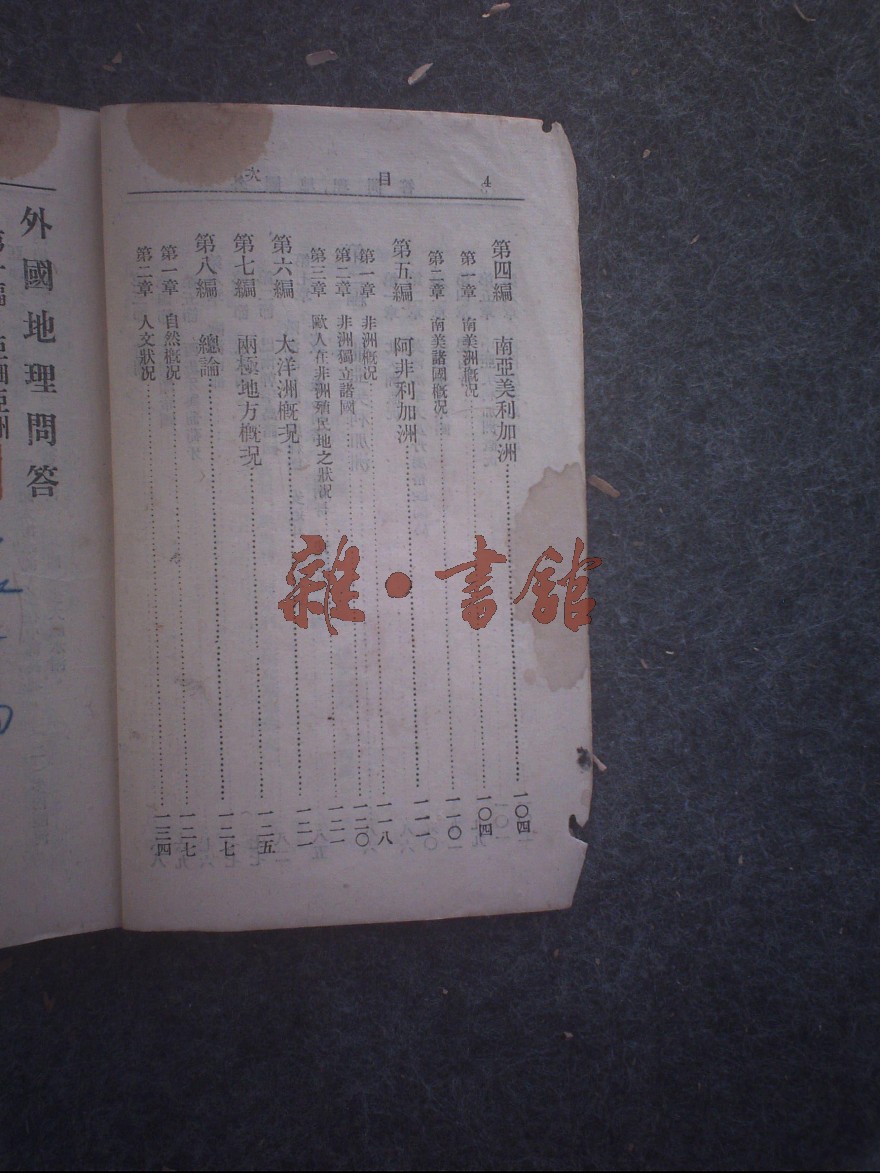 4 目 次
第四編 南亞美利加洲……一〇四
第一章 南美洲概况……一〇四
第二章 南美諸國概况……一一〇
第五編 阿非利加洲……一一一
第一章 非洲概况……一一八
第二章 非洲獨立諸國……一二〇
第三章 歐人在非洲殖民地之狀况……一二一
第六編 大洋洲概况……一二二
第七編 兩極地方概况……一二五
第八編 總論……一二七
第一章 自然概况……一二七
第二章 人文狀况……一三四
外國地理問答
雜·書館